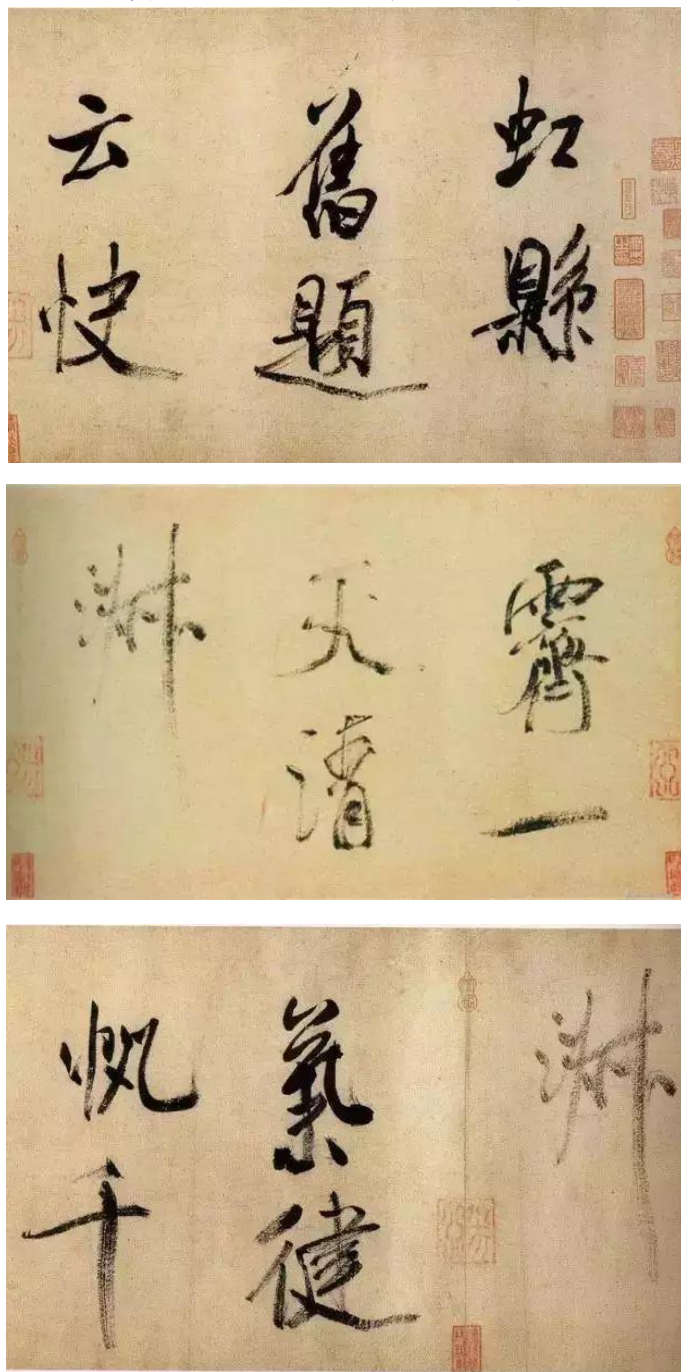 虹縣
舊題
云快
霽一
天清
淑
淑
氣健
帆千